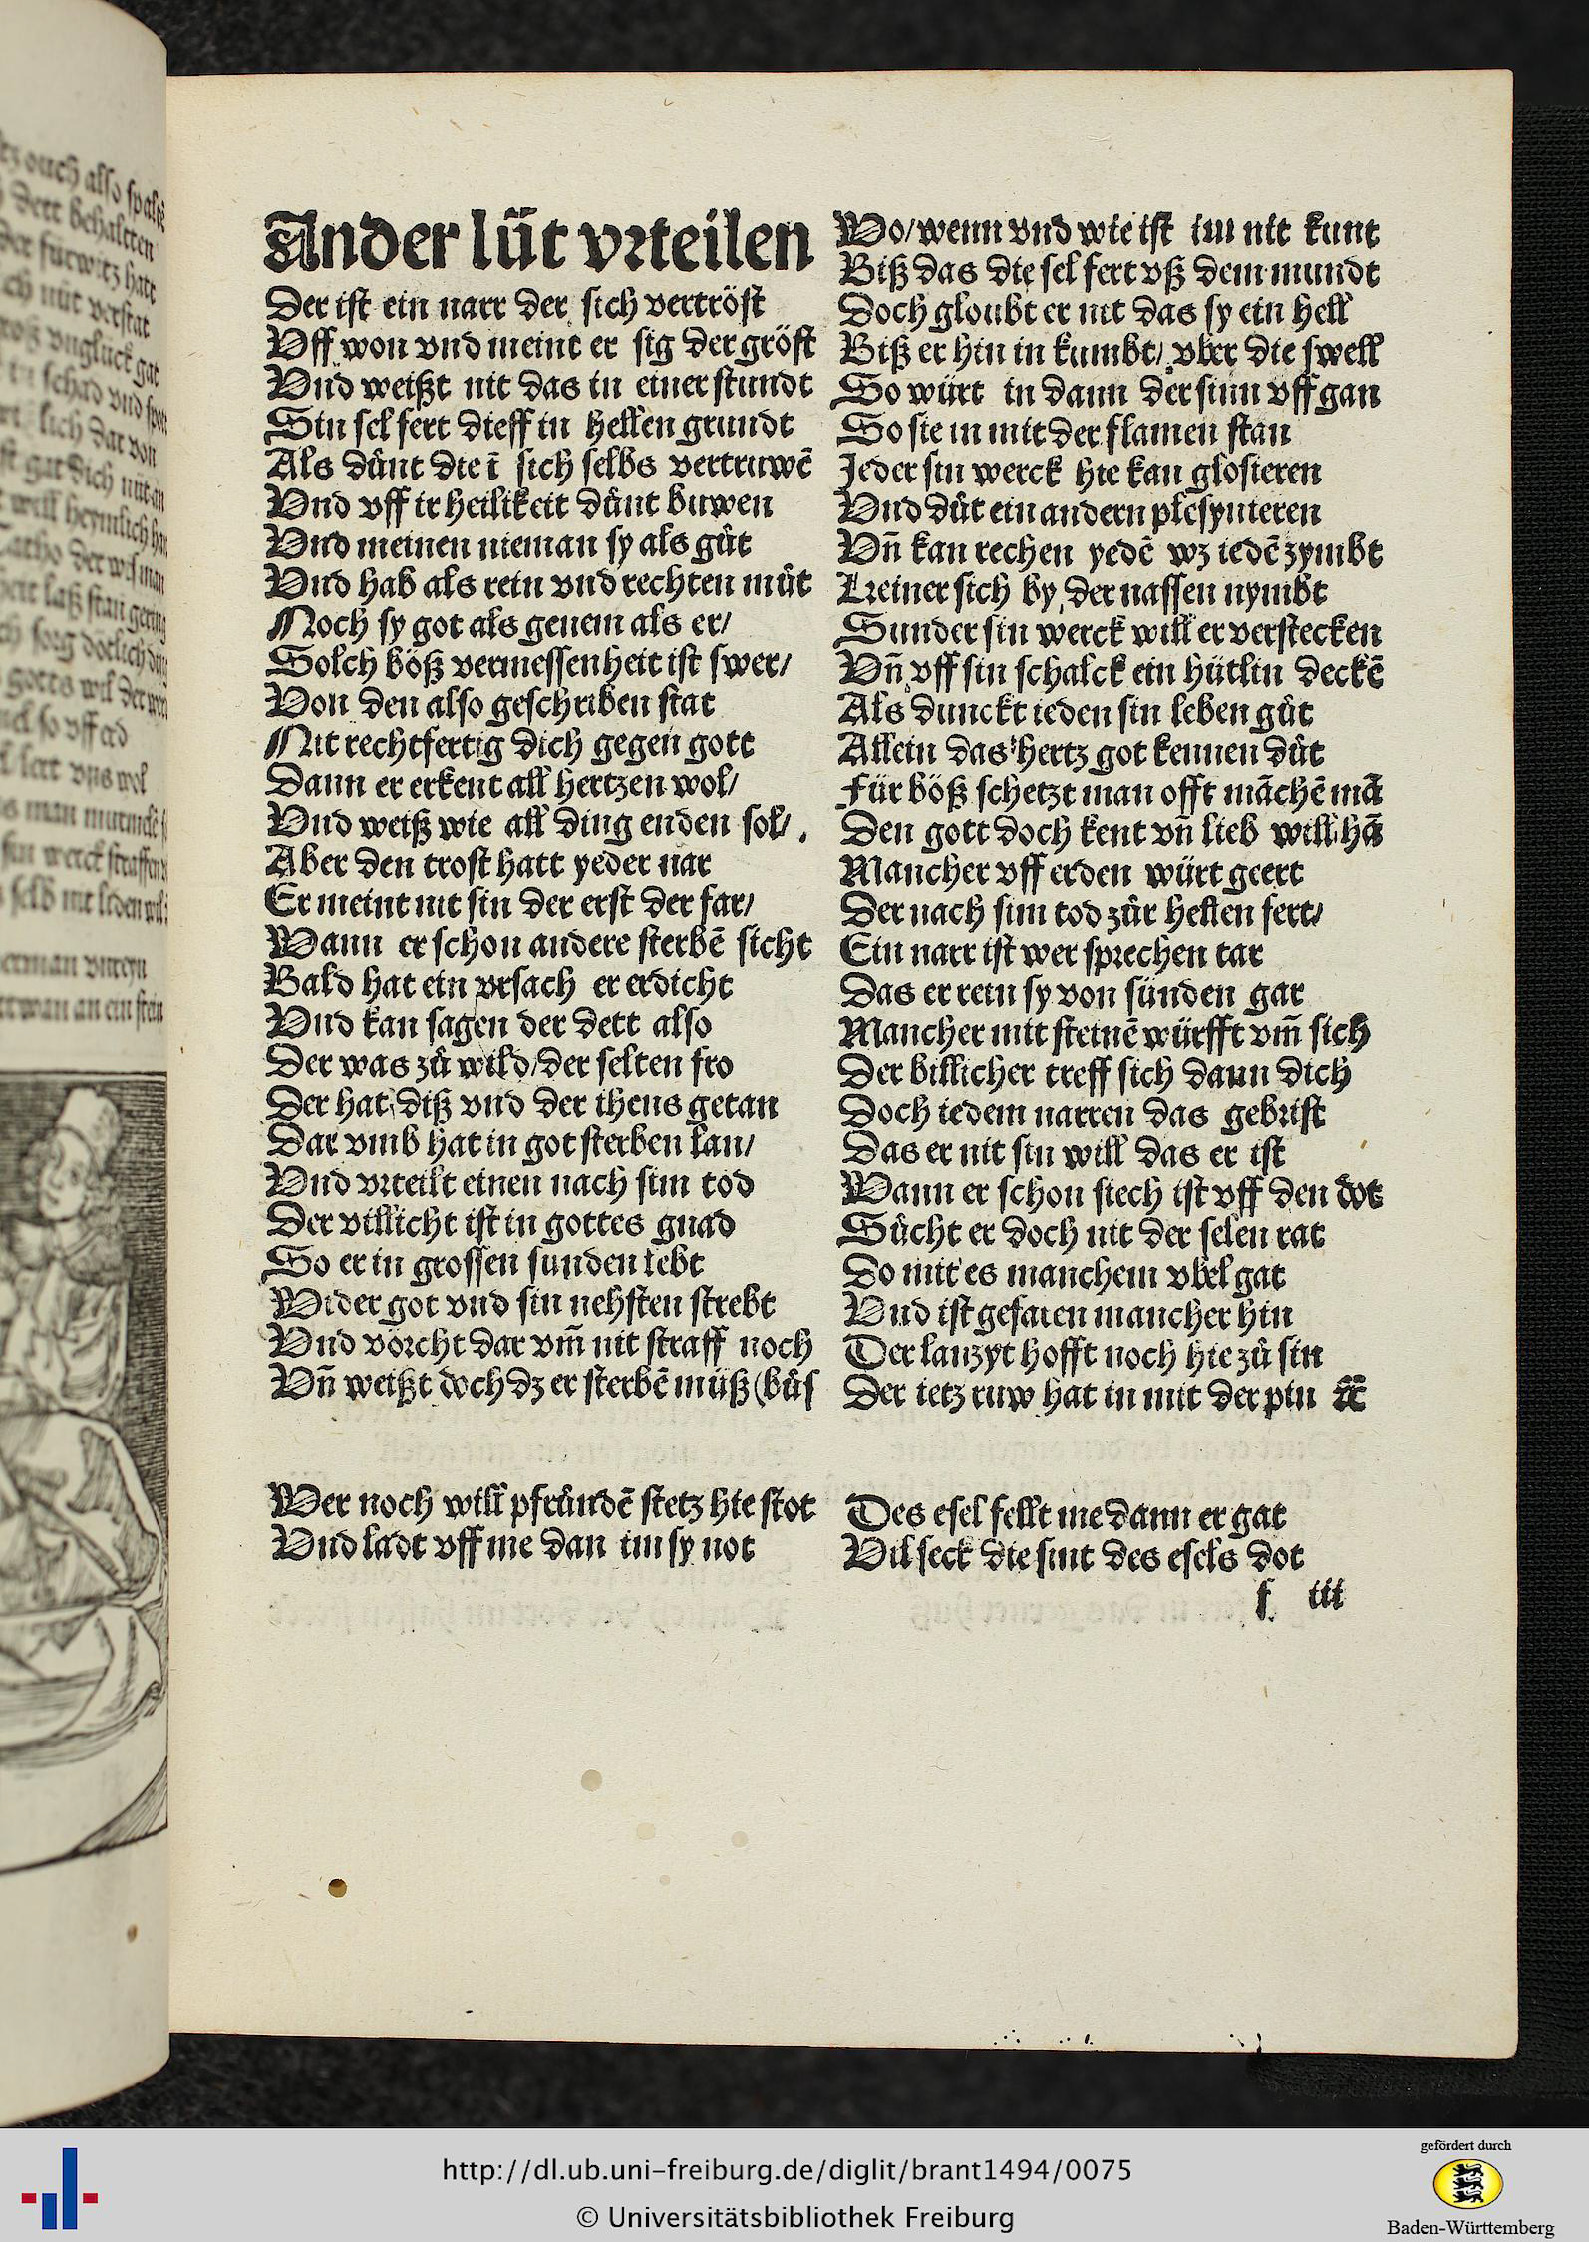 Ander lüt vrteilen
Der ist ein narr der sich vertröst
Vff won vnd meint er sig der gröst
Vnd weißt nit das in einer stundt
Sin sel fert dieff in hellen grundt
Als důnt die ī sich selbs vertruwē
Vnd vff ir heilikeit důnt buwen
Vnd meinen nieman sy als gůt
Vnd hab als rein vnd rechten můt
Noch sy got als genem als er/
Solch böß vermessenheit ist swer/
Von den also geschriben stat
Nit rechtfertig dich gegen gott
Dann er erkent all hertzen wol/
Vnd weiß wie all ding enden sol/.
Aber den trost hatt yeder nar
Er meint nit sin der erst der far/
Wann er schon andere sterbē sicht
Bald hat ein vrsach er erdicht
Vnd kan sagen der dett also
Der was zů wild/der selten fro
Der hat diß vnd der ihens getan
Dar vmb hat in got sterben lan/
Vnd vrteilt einen nach sim tod
Der villicht ist in gottes gnad
So er in grossen sunden lebt
Wider got vnd sin nehsten strebt
Vnd vörcht dar vm̄ nit straff noch
Vn̄ weißt doch dz er sterbē můß (bůs
Wer noch will pfrůndē stetz hie stot
Vnd ladt vff me dan im sy not
Wo/wenn vnd wie ist im nit kunt
Biß das die sel fert vß dem mundt
Doch gloubt er nit das sy ein hell
Biß er hin in kumbt/vber die swell
So würt in dann der sinn vff gan
So sie in mit der flamen stan
Jeder sin werck hie kan glosieren
Vnd důt ein andern plesynieren
Vn̄ kan rechen yedē wz iedē zymbt
Keiner sich by der nassen nymbt
Sunder sin werck will er verstecken
Vn̄ vff sin schalck ein hütlin deckē
Als dunckt ieden sin leben gůt
Allein das hertz got kennen důt
Für böß schetzt man offt māchē mā
Den gott doch kent vn̄ lieb will hā
Mancher vff erden würt geert
Der nach sim tod zůr hellen fert/
Ein narr ist wer sprechen tar
Das er rein sy von sünden gar
Mancher mit steinē würfft vm̄ sich
Der billicher treff sich dann dich
Doch iedem narren das gebrist
Das er nit sin will das er ist
Wann er schon siech ist vff den dot
Sůcht er doch nit der selen rat
Do mit es manchem vbel gat
Vnd ist gefaren mancher hin
Der lanzyt hofft noch hie zů sin
Der ietz ruw hat in mit der pin ⁊c̄
Des esel fellt me dann er gat
Vil seck die sint des esels dot
f iii
http://dl.ub.uni-freiburg.de/diglit/brant1494/0075
© Universitätsbibliothek Freiburg
gefördert durch
Baden-Württemberg